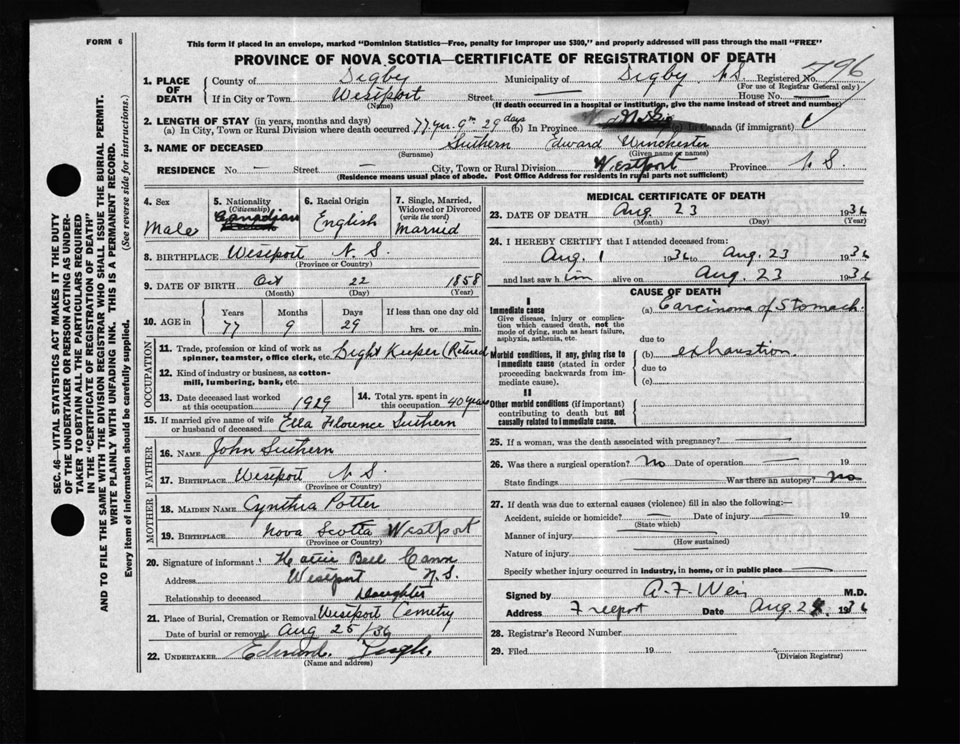 FORM 6
This form if placed in an envelope, marked "Dominion Statistics—Free, penalty for improper use $300," and properly addressed will pass through the mail "FREE"
PROVINCE OF NOVA SCOTIA—CERTIFICATE OF REGISTRATION OF DEATH
SEC. 46—VITAL STATISTICS ACT MAKES IT THE DUTY
OF THE UNDERTAKER OR PERSON ACTING AS UNDER-
TAKER TO OBTAIN ALL THE PARTICULARS REQUIRED
IN THE "CERTIFICATE OF REGISTRATION OF DEATH"
AND TO FILE THE SAME WITH THE DIVISION REGISTRAR WHO SHALL ISSUE THE BURIAL PERMIT.
WRITE PLAINLY WITH UNFADING INK. THIS IS A PERMANENT RECORD.
Every item of information should be carefully supplied. (See reverse side for instructions.)
1. PLACE OF DEATH County of Digby Municipality of Digby N.S. Registered No. 796
(For use of Registrar General only)
If in City or Town Westport Street — House No. —
(Name) (If death occurred in a hospital or institution, give the name instead of street and number)
2. LENGTH OF STAY (in years, months and days)
(a) In City, Town or Rural Division where death occurred 77 yr. 9 m 29 days (b) In Province (c) In Canada (if immigrant)
3. NAME OF DECEASED Suthern Edward Winchester
(Surname) (Given name or names)
RESIDENCE No. — Street — City, Town or Rural Division Westport Province N.S.
(Residence means usual place of abode. Post Office Address for residents in rural parts not sufficient)
4. Sex Male
5. Nationality (Citizenship) Canadian
6. Racial Origin English
7. Single, Married, Widowed or Divorced (write the word) Married
8. BIRTHPLACE Westport N.S.
(Province or Country)
9. DATE OF BIRTH Oct 22 1858
(Month) (Day) (Year)
10. AGE in Years 77 Months 9 Days 29 If less than one day old hrs. or min.
OCCUPATION
11. Trade, profession or kind of work as spinner, teamster, office clerk, etc. Light Keeper (Retired
12. Kind of industry or business, as cotton-mill, lumbering, bank, etc.
13. Date deceased last worked at this occupation 1929
14. Total yrs. spent in this occupation 40 years
15. If married give name of wife or husband of deceased Ella Florence Suthern
FATHER
16. Name John Suthern
17. Birthplace Westport N.S.
(Province or Country)
MOTHER
18. Maiden Name Cynthia Potter
19. Birthplace Nova Scotia Westport
(Province or Country)
20. Signature of informant Hattie Bell Cann
Address Westport N.S.
Relationship to deceased Daughter
21. Place of Burial, Cremation or Removal Westport Cemetry
Date of burial or removal Aug 25/36
22. UNDERTAKER
(Name and address)
MEDICAL CERTIFICATE OF DEATH
23. DATE OF DEATH Aug 23 1936
(Month) (Day) (Year)
24. I HEREBY CERTIFY that I attended deceased from:
Aug. 1 1936 to Aug. 23 1936
and last saw him alive on Aug. 23 1936
CAUSE OF DEATH
I
Immediate cause
Give disease, injury or complication which caused death, not the mode of dying, such as heart failure, asphyxia, asthenia, etc.
(a) Carcinoma of Stomach.
due to
Morbid conditions, if any, giving rise to immediate cause (stated in order proceeding backwards from immediate cause).
(b) exhaustion.
due to
(c)
II
Other morbid conditions (if important) contributing to death but not causally related to immediate cause.
25. If a woman, was the death associated with pregnancy? —
26. Was there a surgical operation? No Date of operation — 19
State findings — Was there an autopsy? no
27. If death was due to external causes (violence) fill in also the following:—
Accident, suicide or homicide? — Date of injury — 19
(State which)
Manner of injury —
(How sustained)
Nature of injury —
Specify whether injury occurred in industry, in home, or in public place —
Signed by M.D.
Address Freeport Date Aug. 1936
28. Registrar's Record Number
29. Filed 19
(Division Registrar)